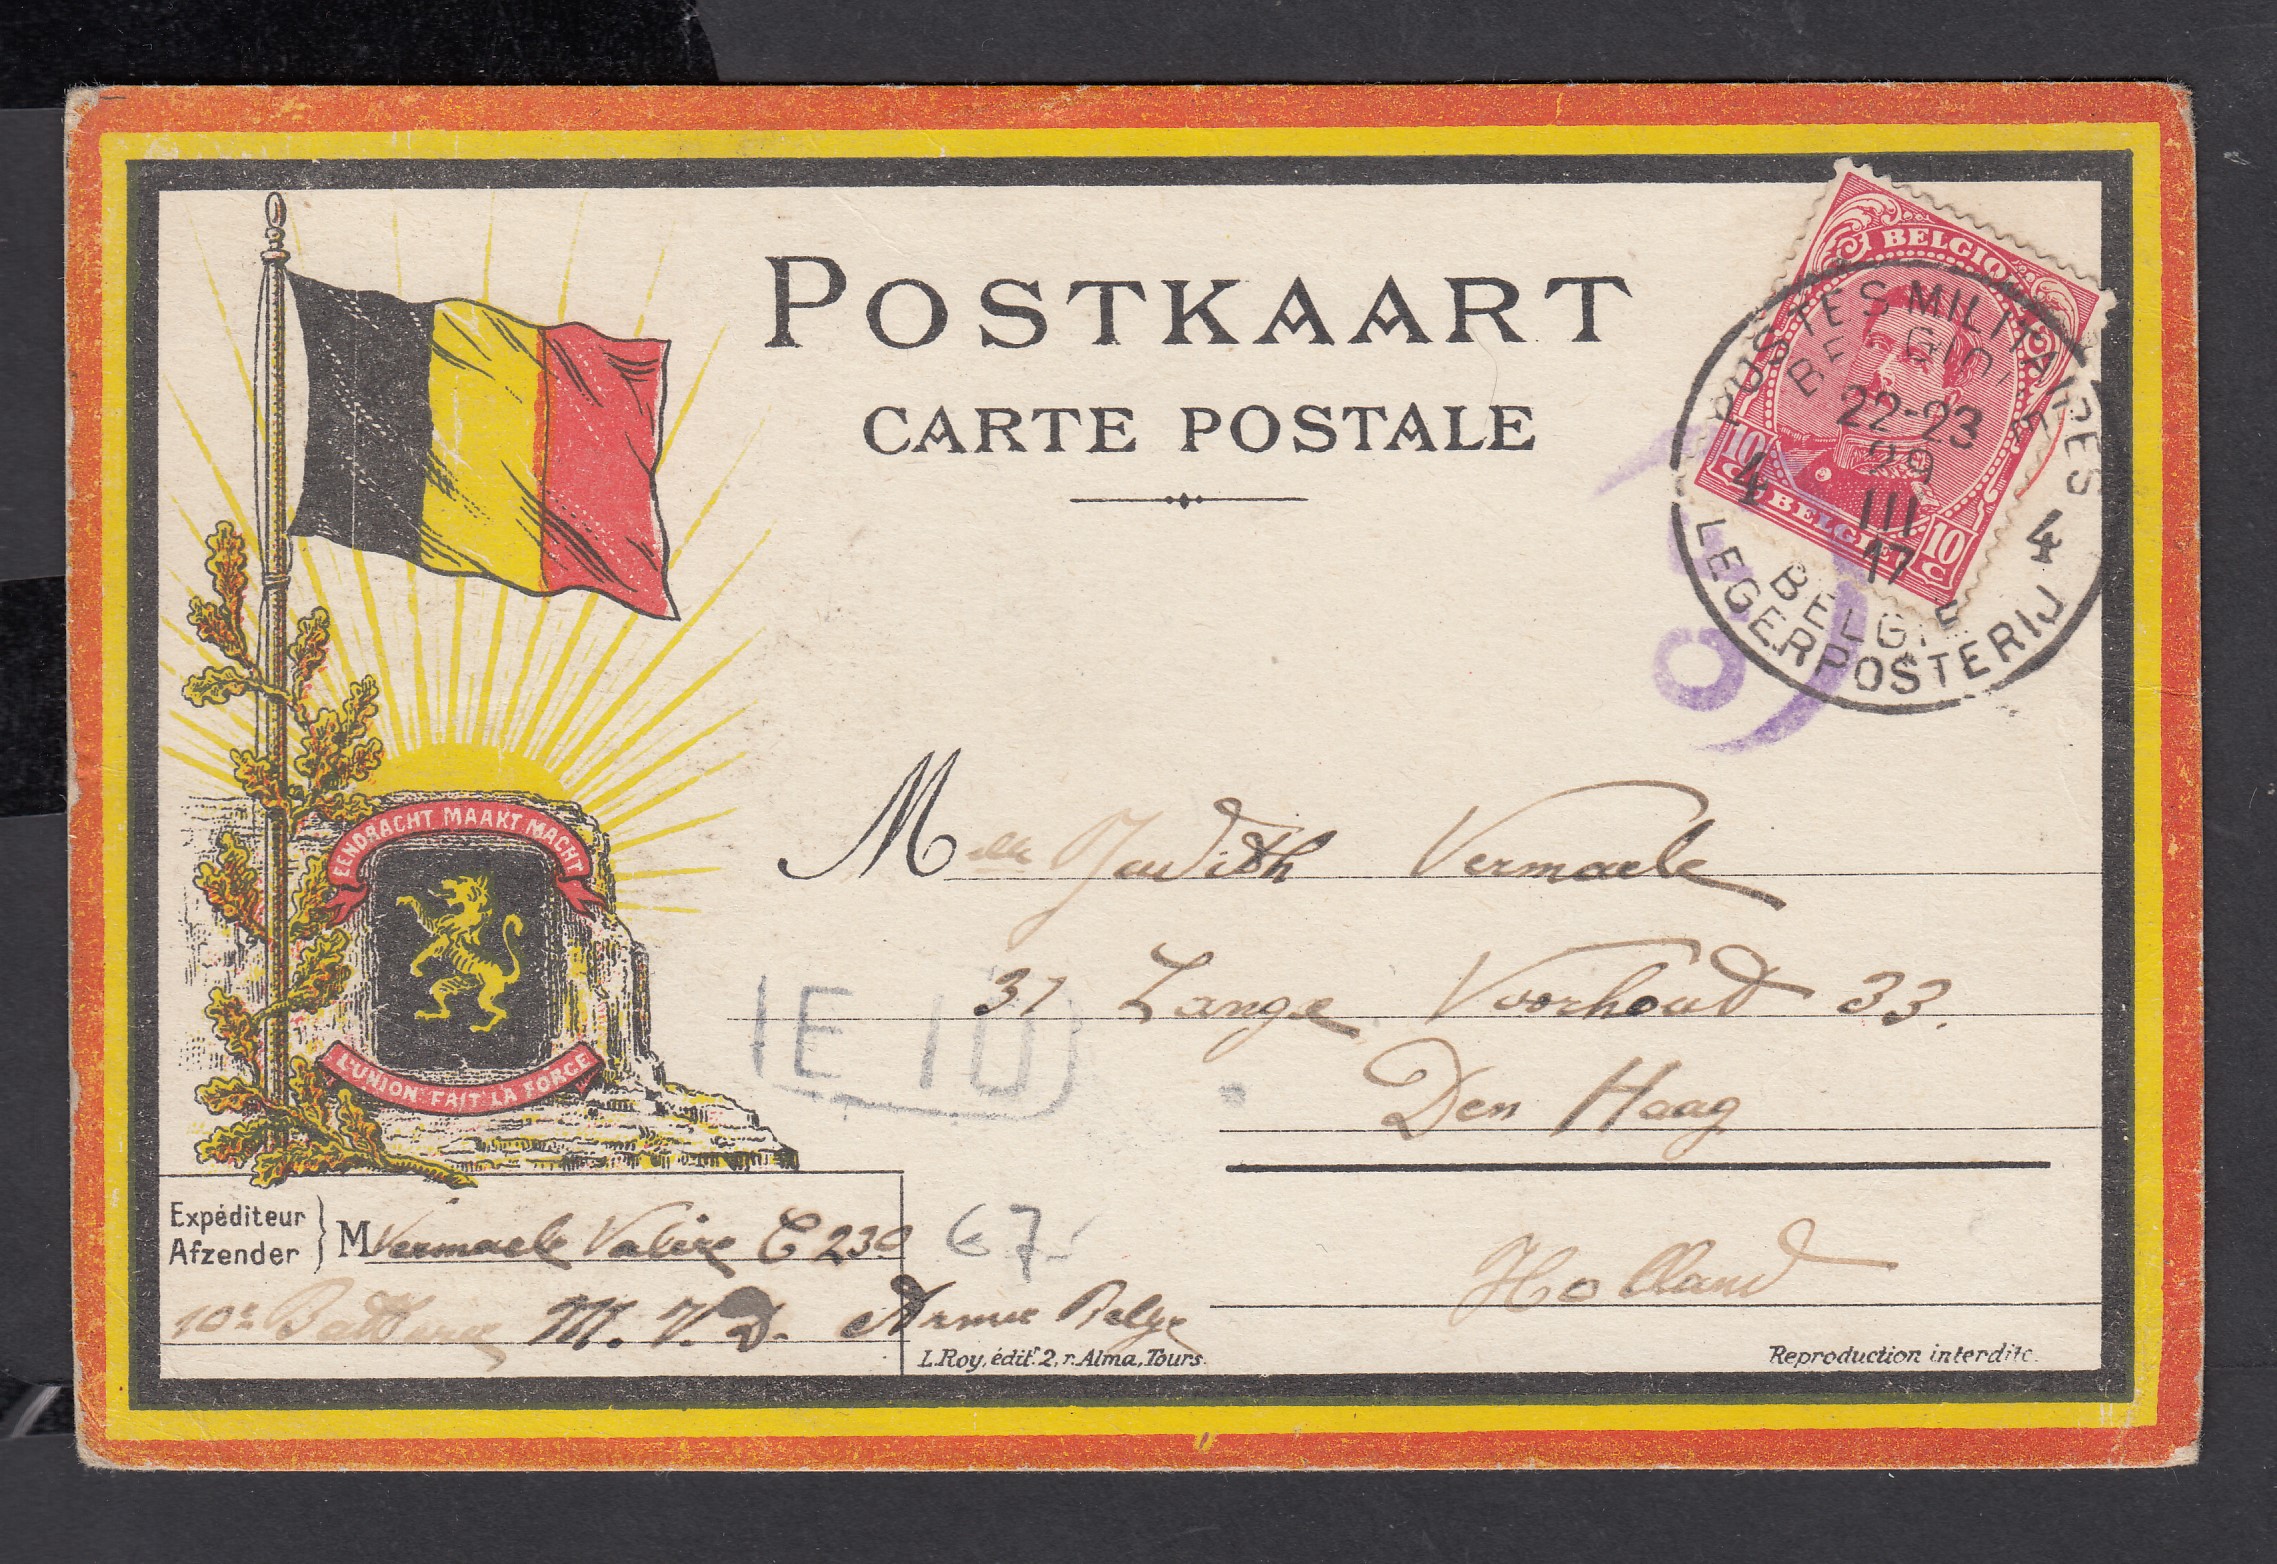 POSTKAART
CARTE POSTALE
BELGIQUE
10 c BELGIE 10 c
POSTES MILITAIRES
BELGIQUE
22-23
29
III
17
4 4
BELGIE
LEGERPOSTERIJ
EENDRACHT MAAKT MACHT
L'UNION FAIT LA FORCE
Melle Judith Vermaele
37 Lange Voorhout 33.
Den Haag
Holland
Expéditeur
Afzender
M Vermaele Valère C 230
10e M.V.D. Armée Belge
€7-
L.Roy, édit.r 2, r. Alma, Tours.
Reproduction interdite.